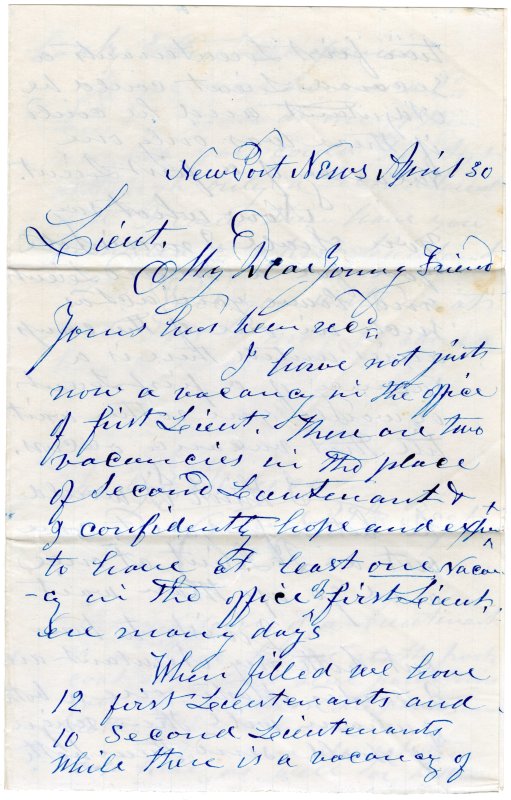 NewPort News April 30
Lieut.
My Dear Young Friend
Yours has been recd.
I have not just
now a vacancy in the office
of first Lieut. There are two
vacancies in the place
of Second Lieutenant &
I confidently hope and expect
to have at least one vacan
-cy in the office of first Lieut.
ere many days
When filled we have
12 first Lieutenants and
10 Second Lieutenants
While there is a vacancy of